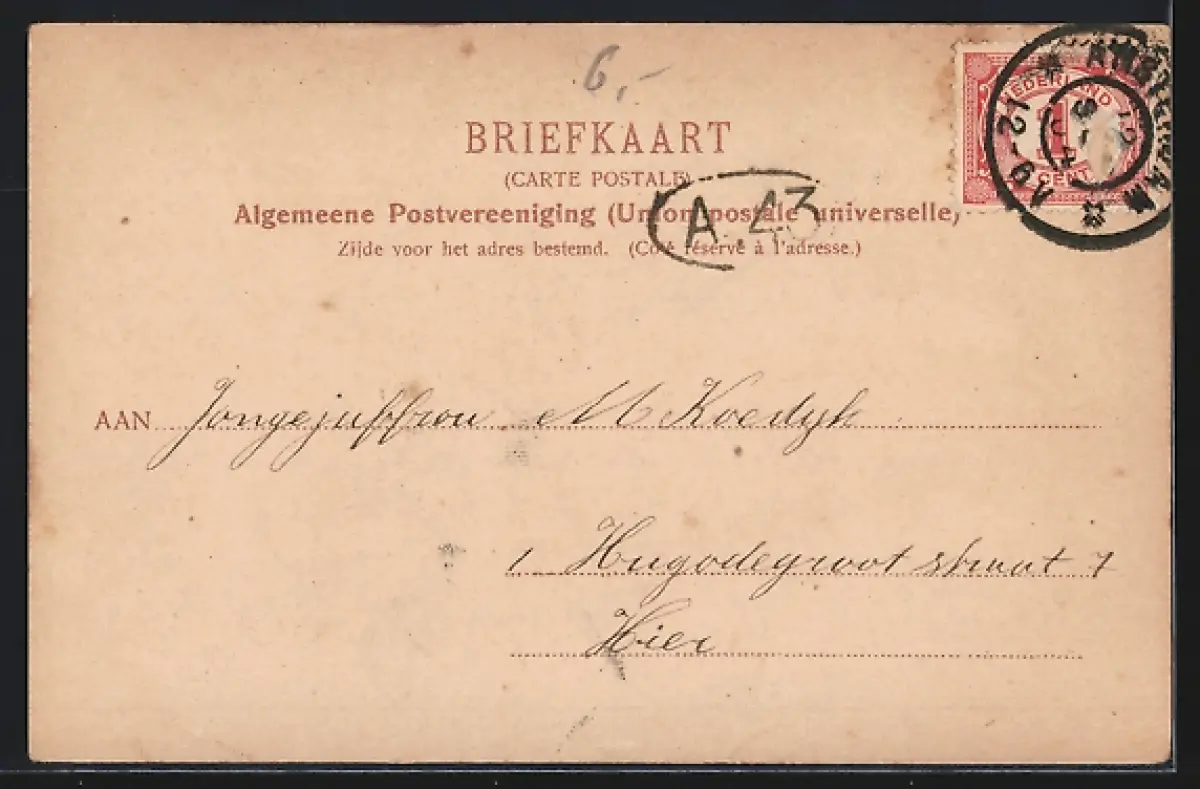 6,-
BRIEFKAART
(CARTE POSTALE)
Algemeene Postvereeniging (Union postale universelle)
Zijde voor het adres bestemd. (Coté réservé à l'adresse.)
NEDERLAND
1
CENT
AMSTERDAM
A. 43
AAN Jongejuffrou M Koedyk
Hugodegroot straat 7
Hier